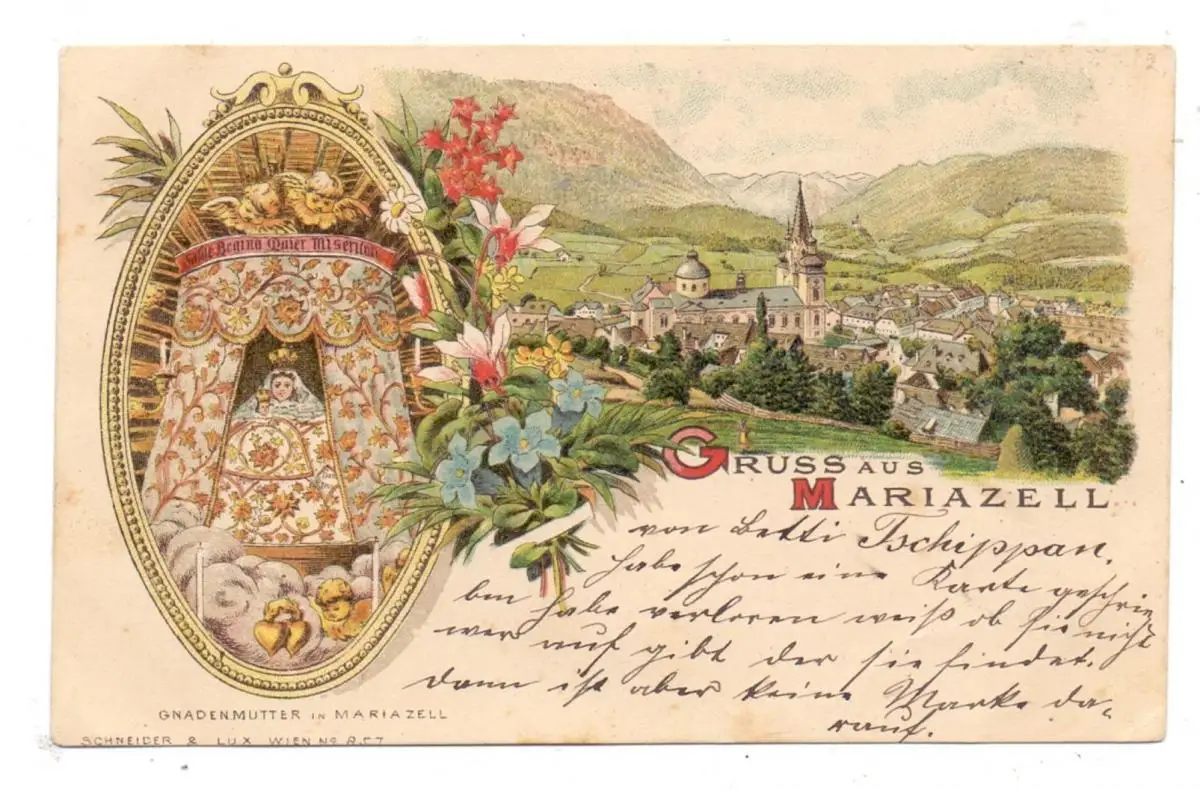 Salve Regina Mater Misericor
GRUSS AUS
MARIAZELL
von Betti Tschippan.
habe schon eine Karte geschrie
ben habe verloren weiß ob sie nicht
wer auf gibt der sie findet.
dann ist aber keine Marke da-
rauf.
GNADENMUTTER IN MARIAZELL
SCHNEIDER & LUX WIEN No